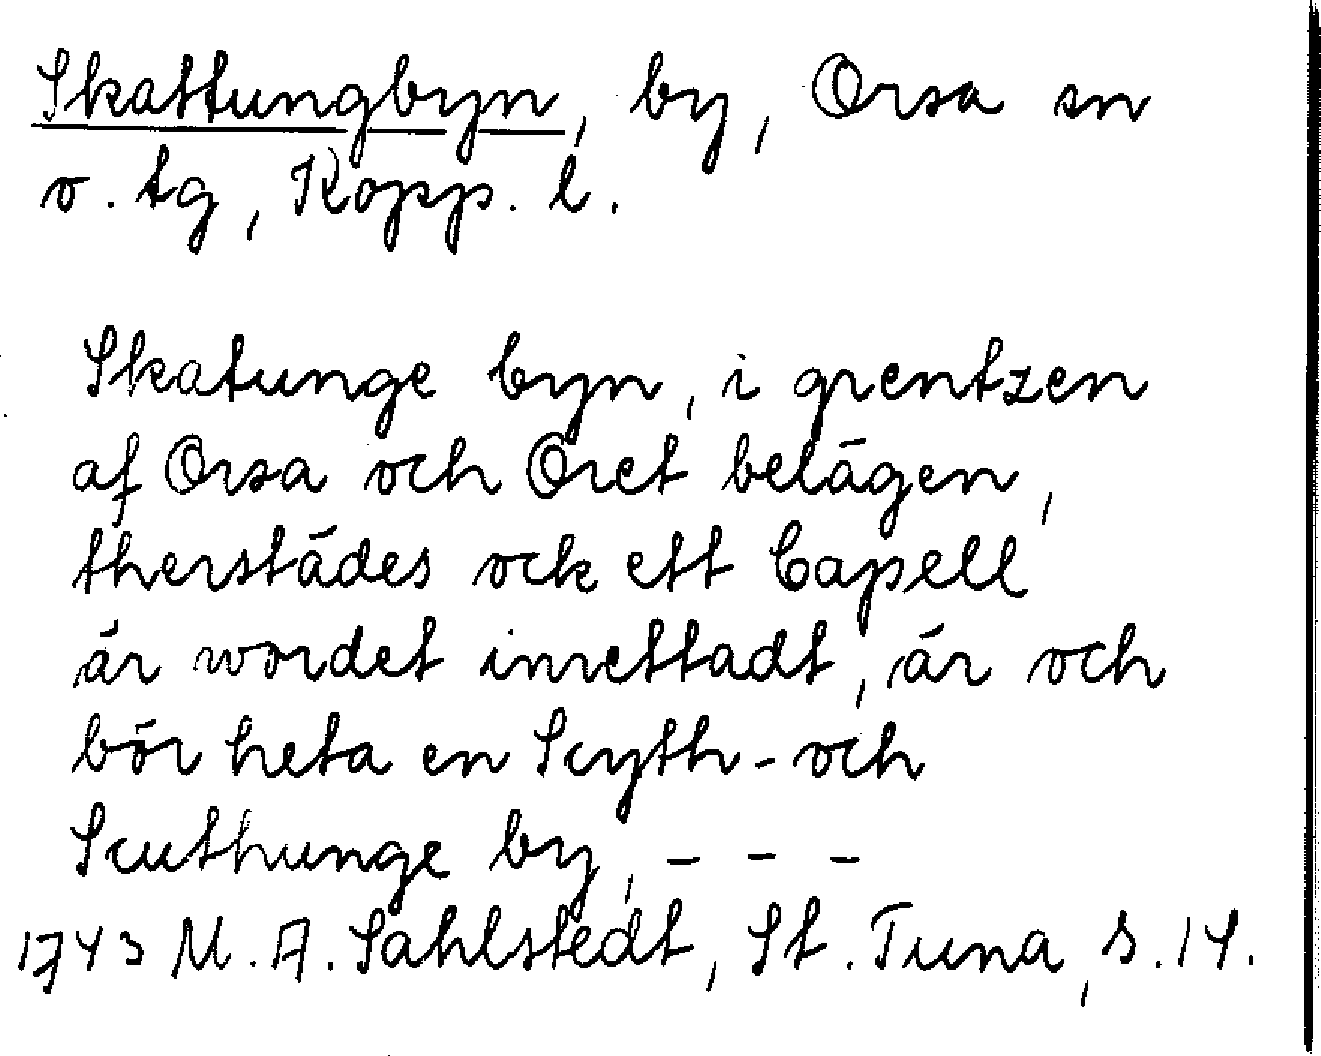 Skattungbyn, by, Orsa sn
o. tg, Kopp. l.
Skatunge byn, i grentzen
af Orsa och Oret belägen,
therstädes ock ett Capell
är wordet inrettadt, är och
bör heta en Scyth- och
Scuthunge by, - - -
1743 M. A. Sahlstedt, St. Tuna, s. 14.